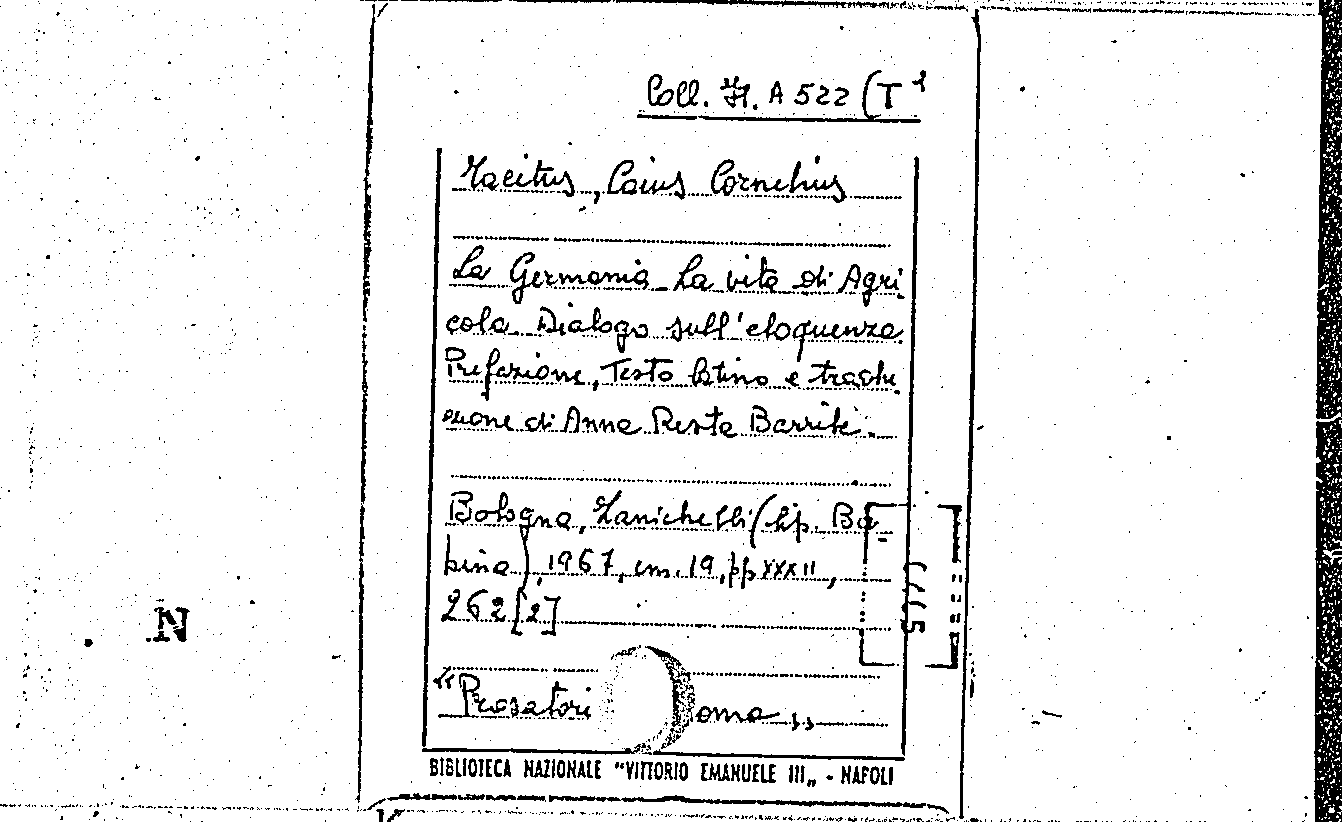 Coll. It. A 522 (T 1
Tacitus, Caius Cornelius
La Germania La vita di Agri
cola Dialogo sull'eloquenza
Prefazione, Testo latino e tradu
zione di Anna Resta Barrile.
Bologna, Zanichelli (tip. Ba-
bina), 1967, cm. 19, pp XXXII,
262 [2]
"Prosatori oma „
BIBLIOTECA NAZIONALE "VITTORIO EMANUELE III„ - NAPOLI
N